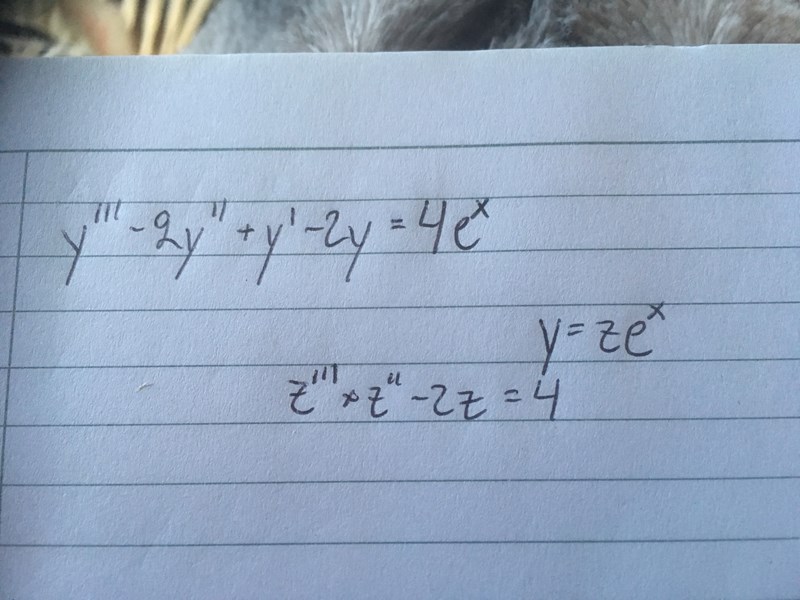 y''' - 2y'' + y' - 2y = 4eˣ
y = zeˣ
z''' + z'' - 2z = 4